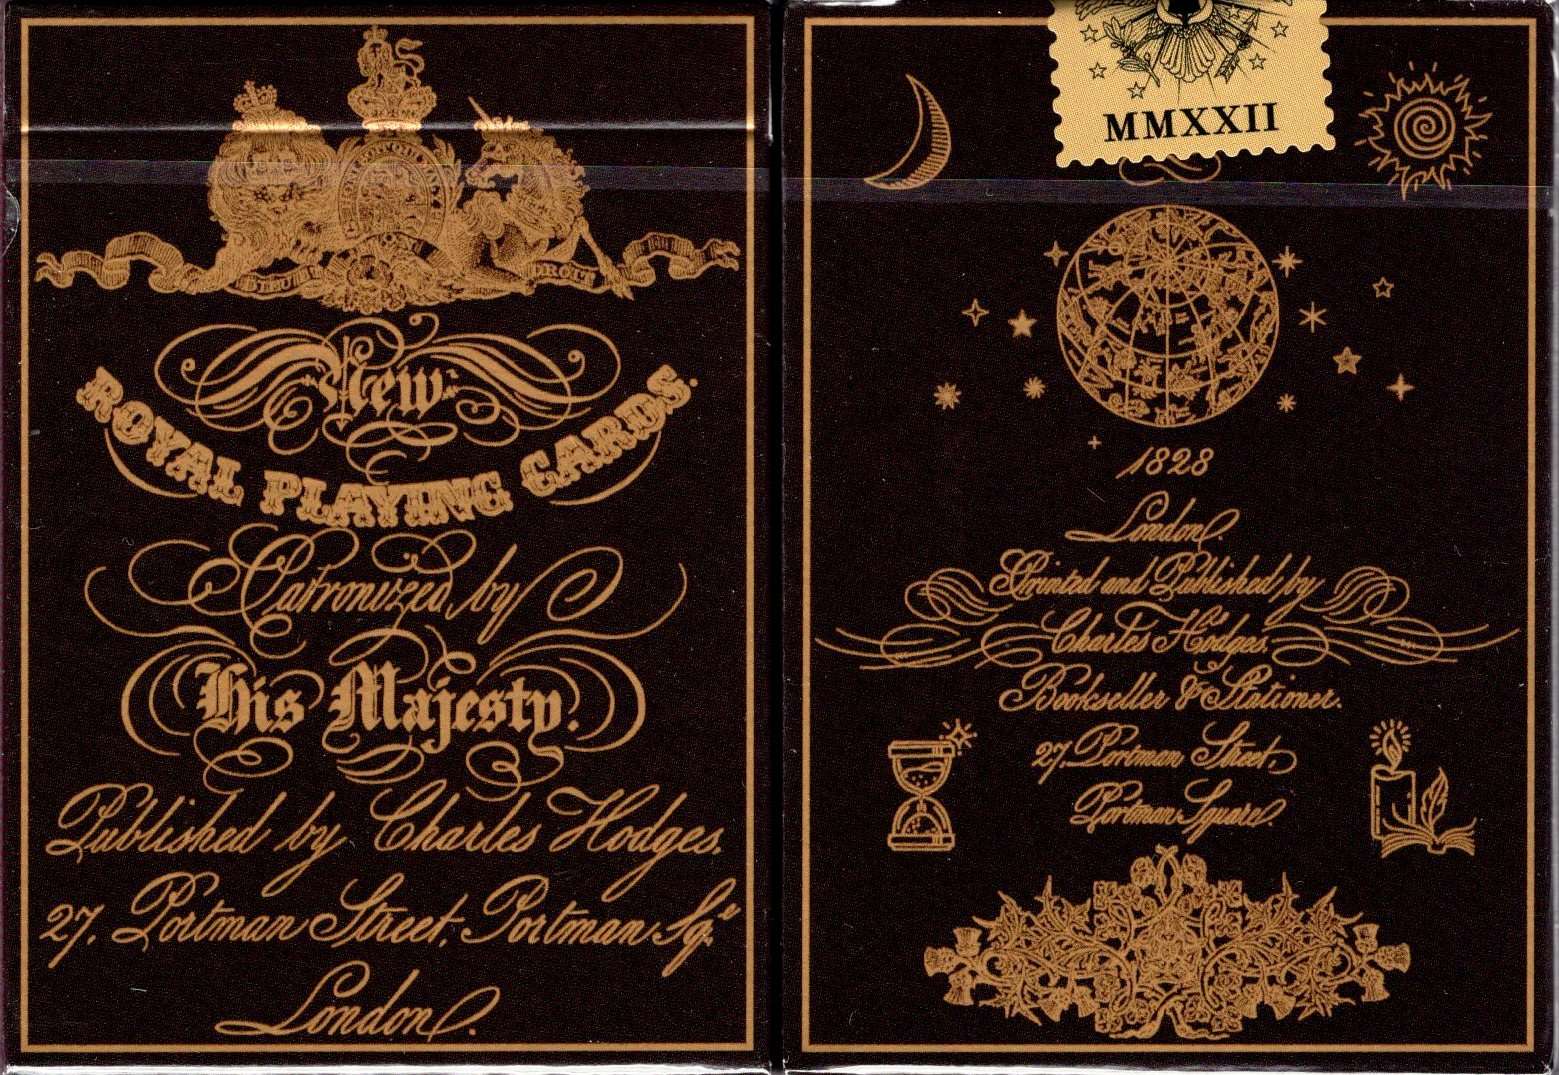 New
ROYAL PLAYING CARDS.
Patronized by
His Majesty.
Published by Charles Hodges,
27, Portman Street, Portman Sqre
London.
MMXXII
1828
London.
Printed and Published by
Charles Hodges.
Bookseller & Stationer.
27, Portman Street,
Portman Square.